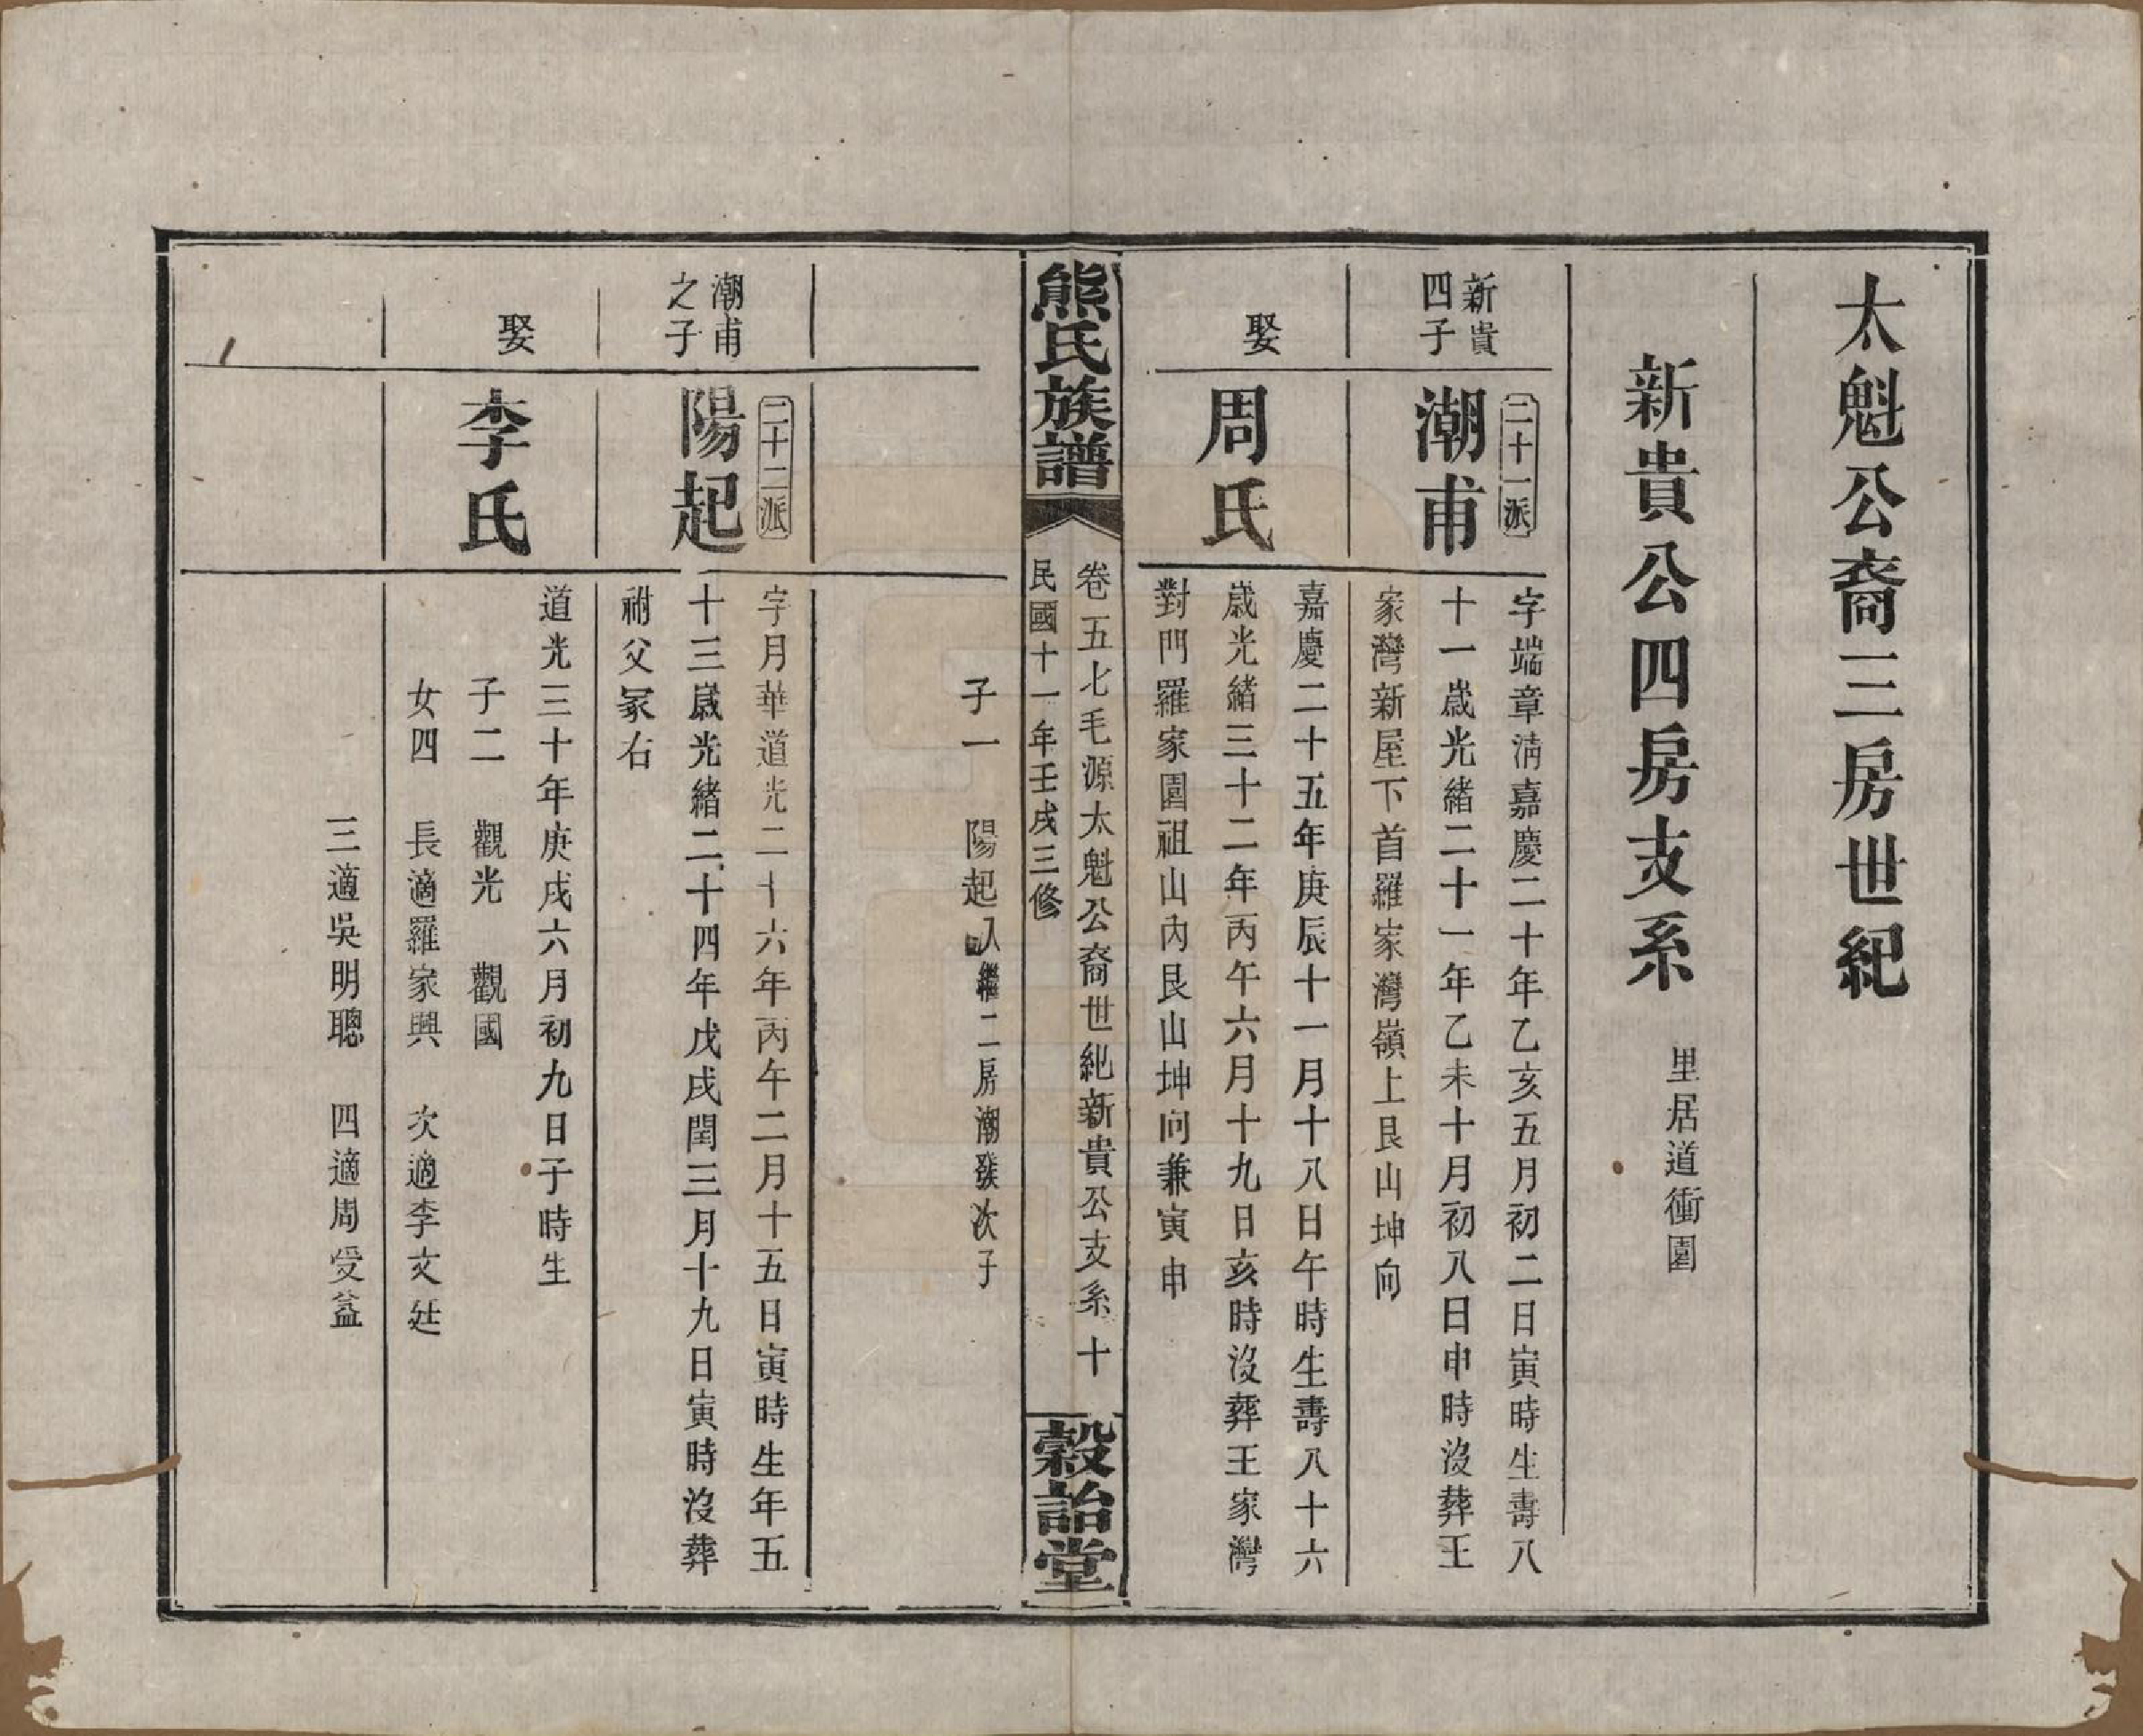 太魁公裔三房世紀
新貴公四房支系
里居道衝園
新貴
四子
二十一派
潮甫
字端章清嘉慶二十年乙亥五月初二日寅時生壽八
十一歲光緒二十一年乙未十月初八日申時沒葬王
家灣新屋下首羅家灣嶺上艮山坤向
娶
周氏
嘉慶二十五年庚辰十一月十八日午時生壽八十六
歲光緒三十二年丙午六月十九日亥時沒葬王家灣
對門羅家園祖山內艮山坤向兼寅申
熊氏族譜
卷五 毛源太魁公裔世紀新貴公支系 十
民國十一年壬戌三修
穀詒堂
子一 陽起入繼二房潮發次子
潮甫
之子
二十二派
陽起
字月華道光二十六年丙午二月十五日寅時生年五
十三歲光緒二十四年戊戌閏三月十九日寅時沒葬
祔父冢右
娶
李氏
道光三十年庚戌六月初九日子時生
子二 觀光 觀國
女四 長適羅家興 次適李文廷
三適吳明聰 四適周受益